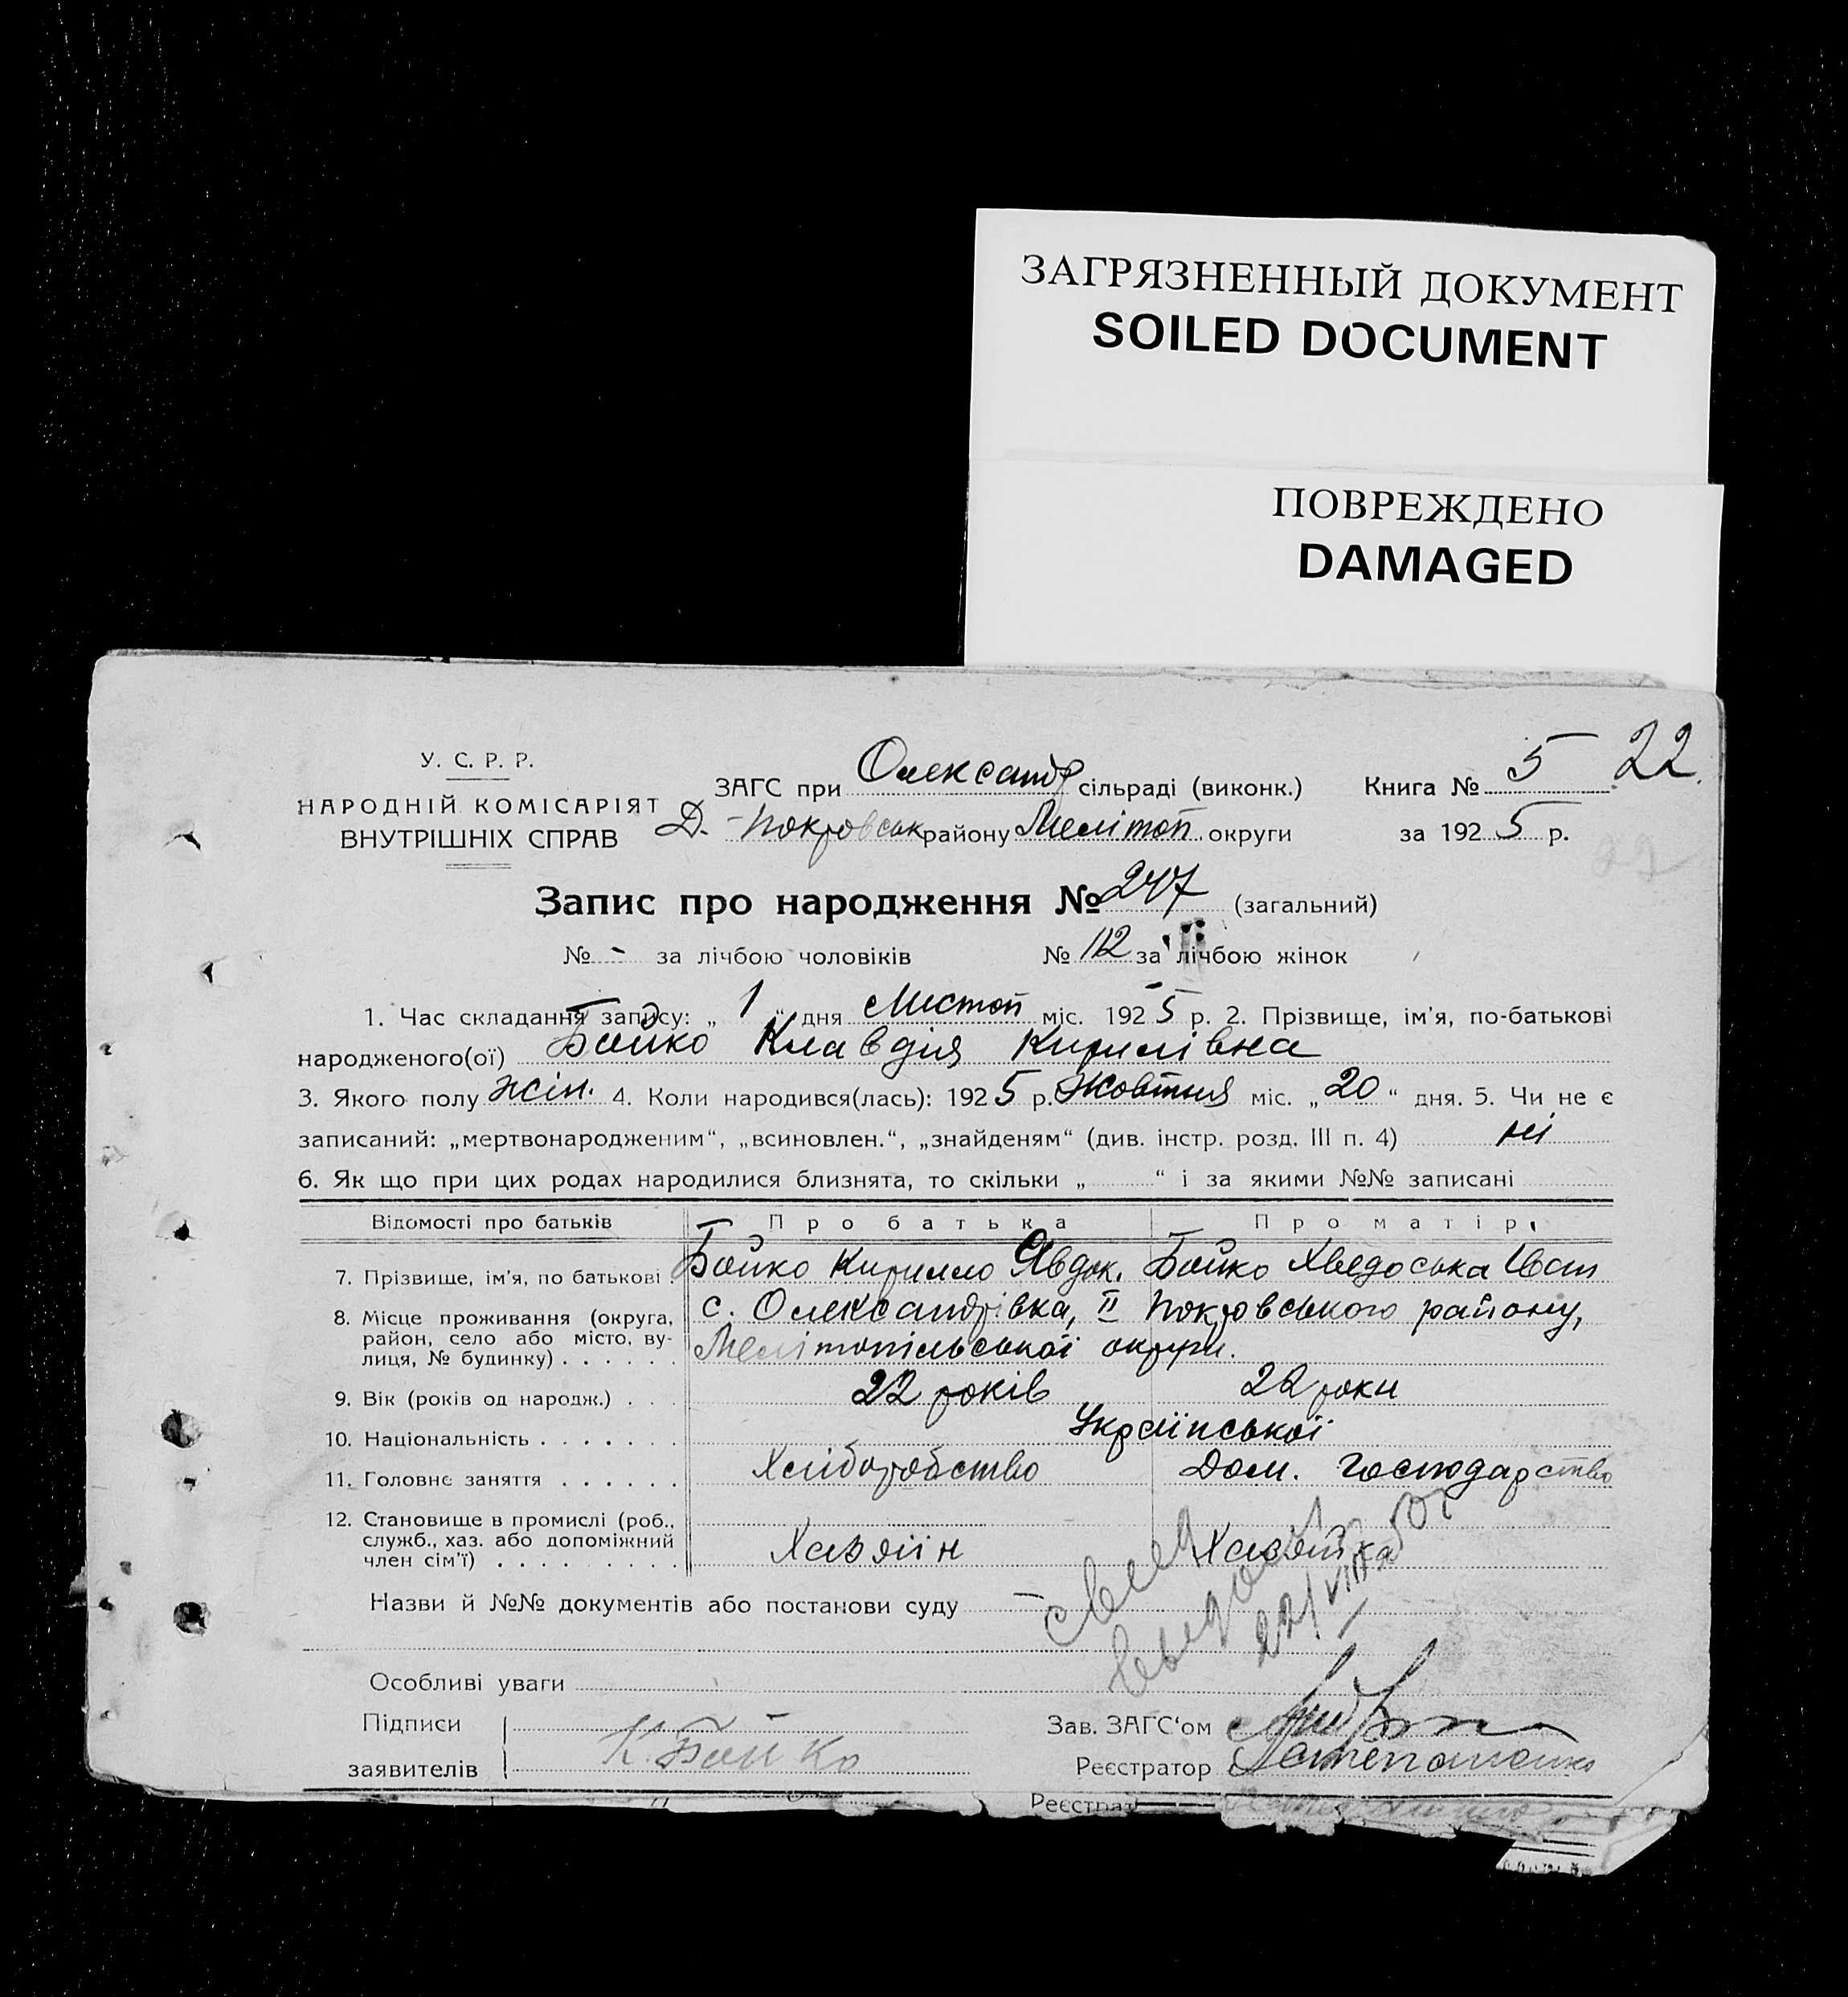 ЗАГРЯЗНЕННЫЙ ДОКУМЕНТ
SOILED DOCUMENT
ПОВРЕЖДЕНО
DAMAGED
22
У. С. Р. Р.
НАРОДНІЙ КОМІСАРІЯТ
ВНУТРІШНІХ СПРАВ
ЗАГС при Олександр сільраді (виконк.) Книга № 5
Д.-Покровськ району Мелітоп. округи за 1925 р.
22
Запис про народження № 247 (загальний)
№ - за лічбою чоловіків № 112 за лічбою жінок
1. Час складання запису: „ 1 “ дня Листоп міс. 1925 р. 2. Прізвище, ім'я, по-батькові
народженого(ої) Бойко Клавдія Кирилівна
3. Якого полу жін. 4. Коли народився(лась): 1925 р. Жовтня міс. „ 20 “ дня. 5. Чи не є
записаний: „мертвонародженим“, „всиновлен.“, „знайденям“ (див. інстр. розд. III п. 4) ні
6. Як що при цих родах народилися близнята, то скільки „ “ і за якими №№ записані
Відомості про батьків Про батька Про матір
7. Прізвище, ім'я, по батькові Бойко Кирилло Явдок. Бойко Хведоська Іван
8. Місце проживання (округа, район, село або місто, вулиця, № будинку) с. Олександрівка, II Покровського району,
Мелітопільської округи.
9. Вік (років од народж.) 22 років 22 роки
10. Національність Української
11. Головне заняття Хліборобство Дом. господарство
12. Становище в промислі (роб., служб., хаз. або допоміжний член сім'ї) Хазяїн Хазяйка
Назви й №№ документів або постанови суду —
22/VIII
Особливі уваги
Підписи
заявителів К. Бойко
Зав. ЗАГС'ом
Реєстратор
Реєстрат